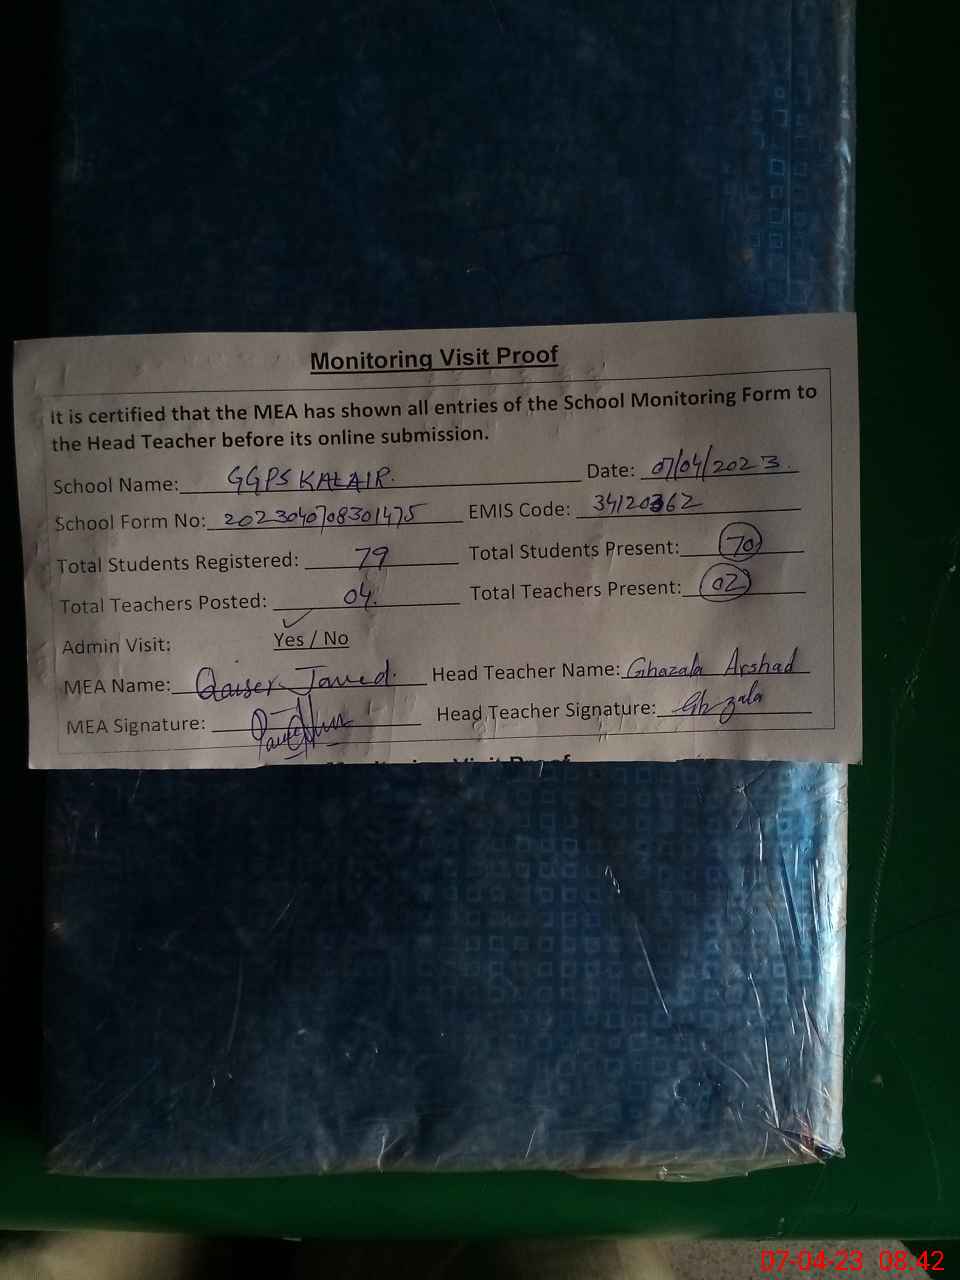 Monitoring Visit Proof
It is certified that the MEA has shown all entries of the School Monitoring Form to
the Head Teacher before its online submission.
School Name: GGPS KALAIR. Date: 07/04/2023.
School Form No: 2023040708301475 EMIS Code: 34120362
Total Students Registered: 79 Total Students Present: 70
Total Teachers Posted: 04. Total Teachers Present: 02
Admin Visit: Yes / No
MEA Name: Qaiser Javed. Head Teacher Name: Ghazala Arshad
MEA Signature: Head Teacher Signature: Ghzala
Monitoring Visit Proof
07-04-23 08:42